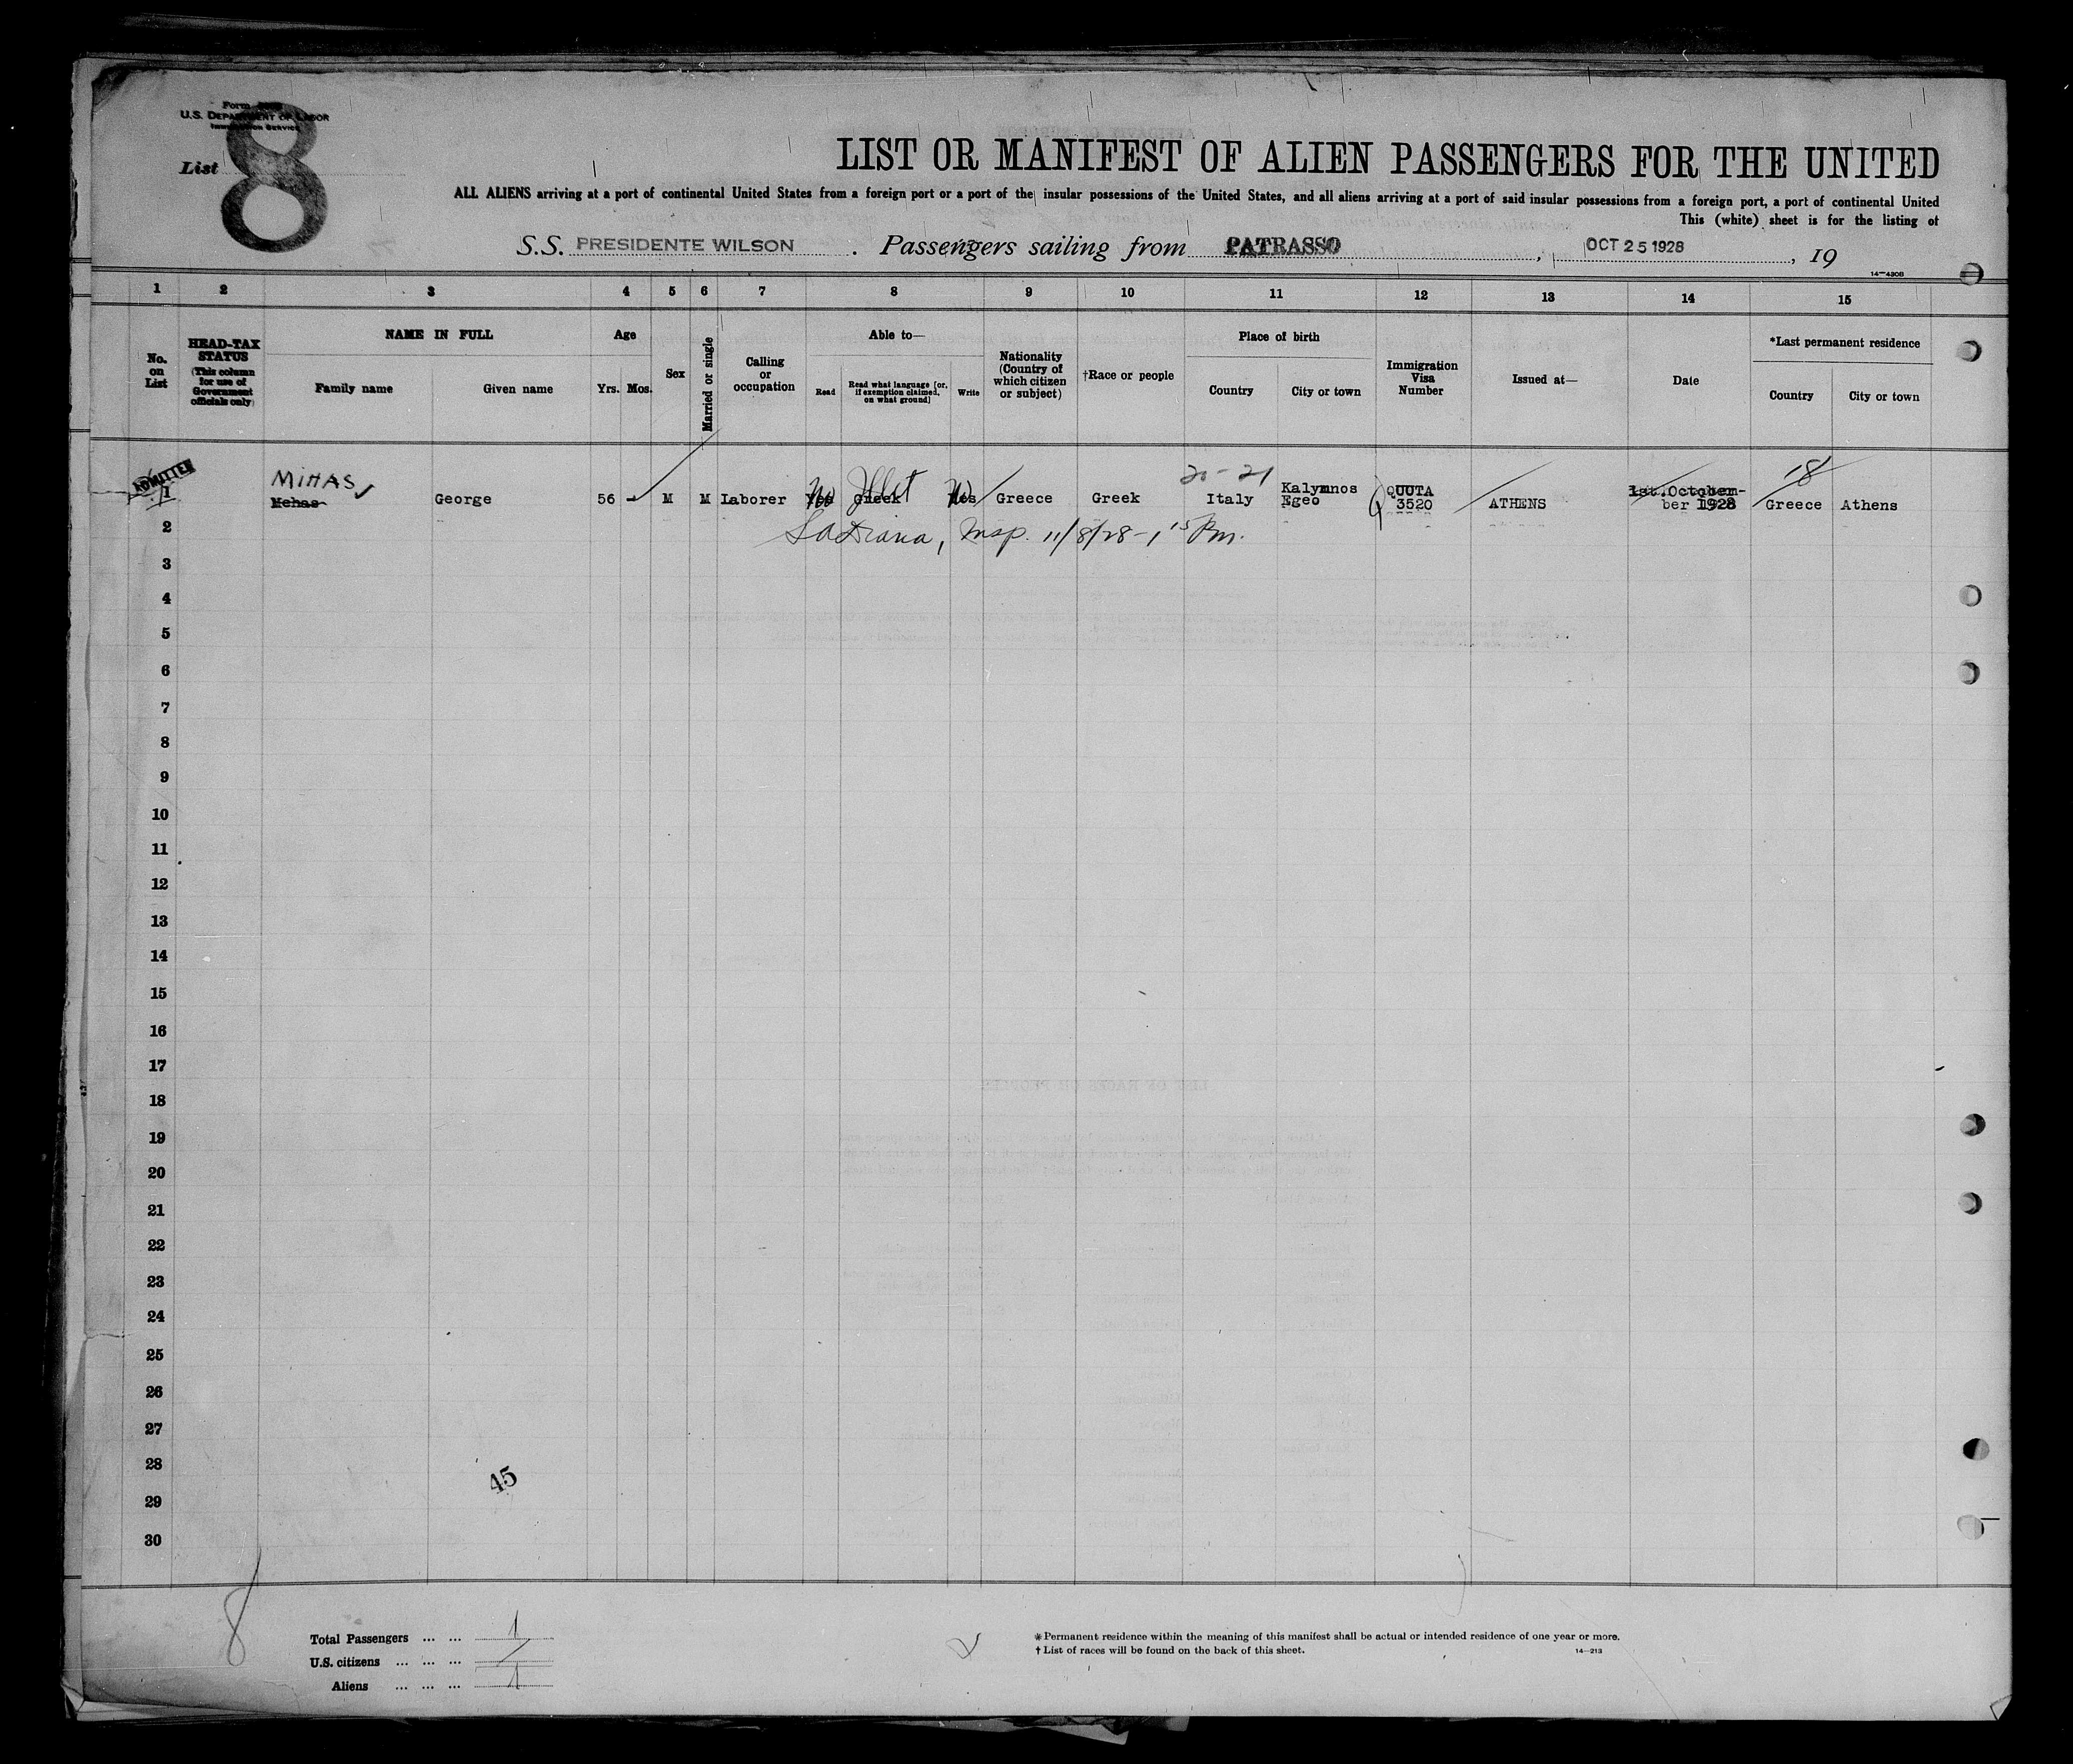 Form
U.S. DEPARTMENT OF LABOR
IMMIGRATION SERVICE
List 8
LIST OR MANIFEST OF ALIEN PASSENGERS FOR THE UNITED
ALL ALIENS arriving at a port of continental United States from a foreign port or a port of the insular possessions of the United States, and all aliens arriving at a port of said insular possessions from a foreign port, a port of continental United
This (white) sheet is for the listing of
S.S. PRESIDENTE WILSON . Passengers sailing from PATRASSO , OCT 25 1928 , 19
14—4308
1 2 3 4 5 6 7 8 9 10 11 12 13 14 15
No. on List
HEAD-TAX STATUS (This column for use of Government officials only)
NAME IN FULL
Family name Given name
Age
Yrs. Mos.
Sex
Married or single
Calling or occupation
Able to—
Read Read what language [or, if exemption claimed, on what ground] Write
Nationality (Country of which citizen or subject)
†Race or people
Place of birth
Country City or town
Immigration Visa Number
Issued at—
Date
*Last permanent residence
Country City or town
ADMITTED
MIHAS 20-21 18
1 Mehas George 56 M M Laborer No Yes Greek No Yes Greece Greek Italy Kalymnos Egeo QUOTA 3520 ATHENS 1st.October- ber 1928 Greece Athens
2 Insp. 11/8/28-1 15 Pm.
3
4
5
6
7
8
9
10
11
12
13
14
15
16
17
18
19
20
21
22
23
24
25
26
27
28
29
30
45
8
Total Passengers ... ... 1
U.S. citizens ... ... ... /
Aliens ... ... ... 1
*Permanent residence within the meaning of this manifest shall be actual or intended residence of one year or more.
†List of races will be found on the back of this sheet.
14—213